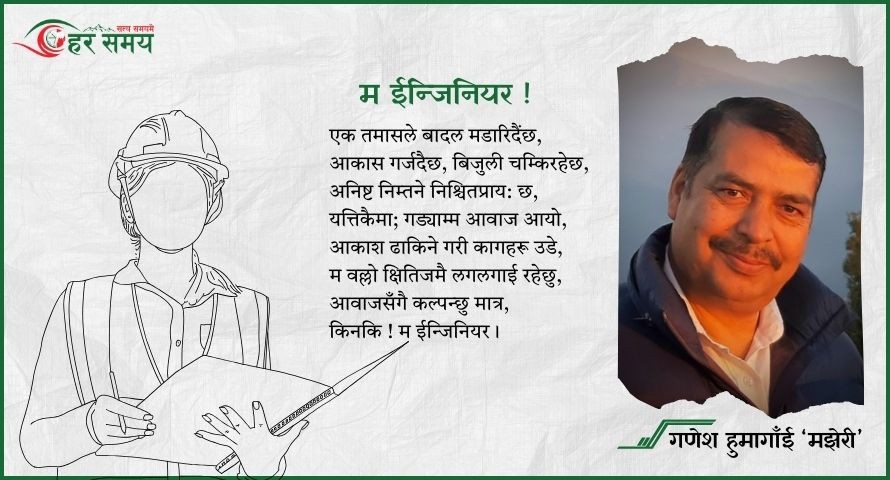 सत्य समयमै
हर समय
म ईन्जिनियर !
एक तमासले बादल मडारिदैंछ,
आकास गर्जदैछ, बिजुली चम्किरहेछ,
अनिष्ट निम्तने निश्चितप्राय: छ,
यत्तिकैमा; गड्याम्म आवाज आयो,
आकाश ढाकिने गरी कागहरू उडे,
म वल्लो क्षितिजमै लगलगाई रहेछु,
आवाजसँगै कल्पन्छु मात्र,
किनकि ! म ईन्जिनियर ।
गणेश हुमागाँई ‘मझेरी’